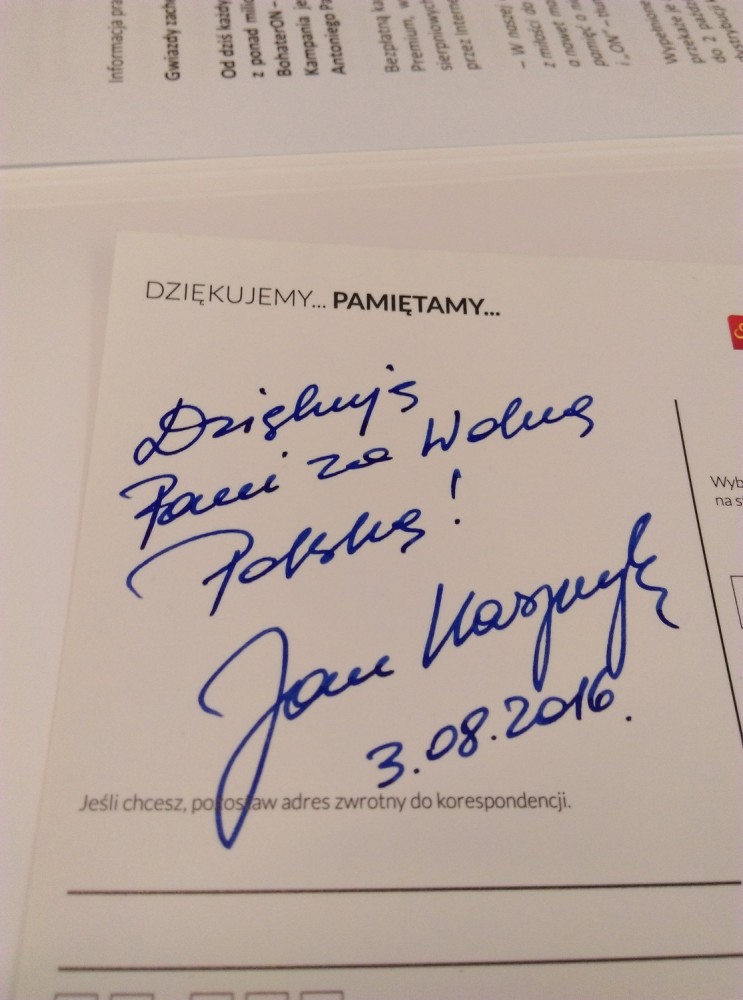 Informacja pra
Gwiazdy zach
Od dziś każdy
z ponad milio
BohaterON –
Kampania je
Antoniego Pa
Bezpłatną ka
Premium, w
sierpniowych
przez Interne
– W naszej
z miłości do
o nawet mo
pamięć o ni
i „ON” – tłu
Wypełnione
przekaże je
do 2 paźdz
dystrybucji k
DZIĘKUJEMY... PAMIĘTAMY...
Dziękuję
Pani za Wolną
Polskę!
Jan Kasprzyk
3.08.2016.
Wyb
na s
Jeśli chcesz, pozostaw adres zwrotny do korespondencji.